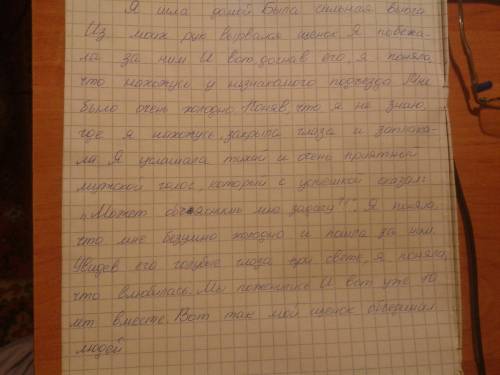 Я шла домой. Была сильная вьюга.
Из моих рук вырвался щенок. Я побежа-
ла за ним. И вот, догнав его, я поняла,
что нахожусь у незнакомого подъезда. Мне
было очень холодно. Поняв, что я не знаю,
где я нахожусь, закрыла глаза и заплака-
ла. Я услышала тихий и очень приятный
мужской голос, который с усмешкой сказал:
„Может объяснить мне задачу?". Я поняла,
что мне безумно холодно и пошла за ним.
Увидев его голубые глаза при свете, я поняла,
что влюбилась. Мы поженились. И вот уже 10
лет вместе. Вот так мой щенок объединил
людей